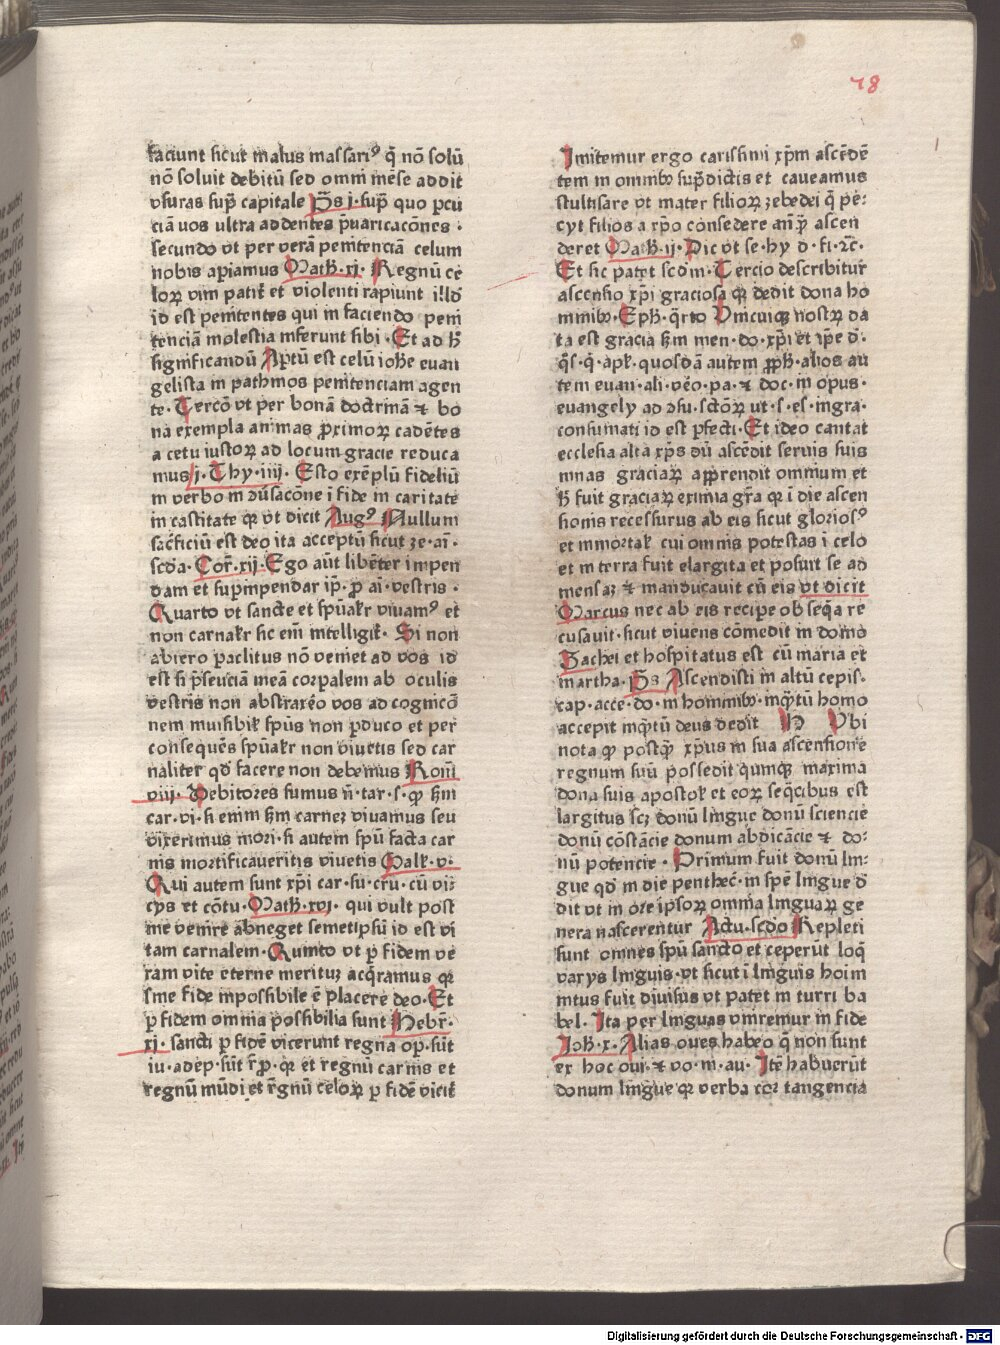 78
faciunt sicut malus massariꝰ q̄ nō solū
nō soluit debitū sed omni mēse addit
vsuras sup̄ capitale p̄s i· sup̄ quo ꝑcu
ciā uos ultra addentes p̄uaricacōnes ·
secundo vt per verā penitenciā celum
nobis apiamus Math̄·xi· Regnū ce
loꝝ vim patit̄ et violenti rapiunt illd̄
id est penitentes qui in faciendo peni
tenciā molestia inferunt sibi · Et ad h̄
significandū Aptū est celū iohe euan
gelista in pathmos penitenciam agen
te· Tercō vt per bonā doctrinā ⁊ bo
na exempla animas ꝓximoꝝ cadētes
a cetu iustoꝝ ad locum gracie reduca
mus i· Thy·iiii· Esto exēplū fideliū
in verbo in ꝯūsacōne ī fide in caritate
in castitate qꝛ vt dicit Augꝰ Nullum
sac̄ficiū est deo ita acceptū sicut ze·ai·
scd̄a· Cor̄·xii· Ego aūt libēter impen
dam et sup̄inpendar ip̄· ꝓ ai· vestris ·
Quarto vt sancte et spūalr̄ viuamꝰ et
non carnalr̄ sic em̄ intelligit̄· Si non
abiero paclitus nō veniet ad vos id
est si p̄senciā meā corpalem ab oculis
vestris non abstraxēo vos ad cognicō
nem inuisibil̄ spūs non ꝑduco et per
consequēs spūalr̄ non viuetis sed car
naliter qd̄ facere non debemus Rom̄
viii· Debitores sumus n̄·tar·s·qꝛ km̄
car·vi· si enim km̄ carneꝫ viuamus seu
vixerimus mori· si autem spū facta car
nis mortificaueritis viuetis Galk̄·v·
Qui autem sunt xp̄i car·su·cru·cū vi:
cys et cōtu· Math̄·xvi· qui vult post
me venire abneget semetipsū id est vi
tam carnalem· Quinto vt ꝑ fidem ve
ram vite eterne merituꝫ acq̄ramus qꝛ
sine fide inpossibile ē placere deo· Et
ꝑ fidem omnia possibilia sunt Hebr̄·
xi· sancti ꝑ fidē vicerunt regna op̄·sūt
iu·adep̄·sūt r̄ꝓ·qꝛ et regnū carnis et
regnū mūdi et r̄gnū celoꝝ ꝑ fidē vicit̄
Imitemur ergo carissimi xp̄m ascēdē
tem in omnibꝫ sup̄dictis et caueamus
stultisare vt mater filioꝝ zebedei q̄ pe:
cyt filios a xp̄o consedere an̄ꝗ̄ ascen
deret Math̄·ij· Dic vt se·hy d·fi·ꝛc̄·
Et sic patet scd̄m· Tercio describitur
ascensio xp̄i graciosa qꝛ dedit dona ho
minibꝫ· Eph̄·q̄rto Unicuiqꝫ nostrꝝ da
ta est gracia km̄ men·do·xp̄i et ip̄e d̄·
q̄s·q̄·apl̄·quosdā autem ꝓph̄·alios au
tem euan·ali·vēo·pa·⁊ doc·in opus·
euangely ad ꝯsu·sctōꝝ ut·s·es·ingra·
consumati id est ꝑfecti· Et ideo cantat
ecclesia alta xp̄s dū ascēdit seruis suis
innas graciaꝝ apprendit omnium et
h̄ fuit graciaꝝ eximia gr̄a qꝛ ī die ascen
sionis recessurus ab eis sicut gloriosꝰ
et inmortal̄ cui omnis potestas ī celo
et in terra fuit elargita et posuit se ad
mensaꝫ ⁊ manducauit cū eis vt dicit
Marcus nec ab eis recipe obseq̄a re
cusauit· sicut viuens cōmedit in domo
Zachei et hospitatus est cū maria et
martha· p̄s Ascendisti in altū cepis·
cap·acce·do·in hominibꝫ·inq̄tū homo
accepit inq̄tū deus dedit N Ubi
nota qꝛ postꝗ̄ xp̄us in sua ascensione
regnum suū possedit quinqꝫ maxima
dona suis apostol̄ et eoꝝ seq̄cibus est
largitus scꝫ donū lingue donū sciencie
donū cōstācie donum abdicācie ⁊ do:
nū potencie · Primum fuit donū lin:
gue qd̄ in die penthec̄·in spē lingue d̄
dit vt in ore ipsoꝝ omnia linguaꝝ ge
nera nascerentur Actu·scd̄o Repleti
sunt omnes spū sancto et ceperūt loq̄
varys linguis·vt sicut ī linguis hoim
intus fuit diuisus vt patet in turri ba
bel· Ita per linguas vniremur in fide
Ioh̄·x· Alias oues habeo q̄ non sunt
ex hoc oui·⁊ vo·m·au· Itē habuerūt
donum lingue qꝛ verba cor tangencia
Digitalisierung gefördert durch die Deutsche Forschungsgemeinschaft - DFG